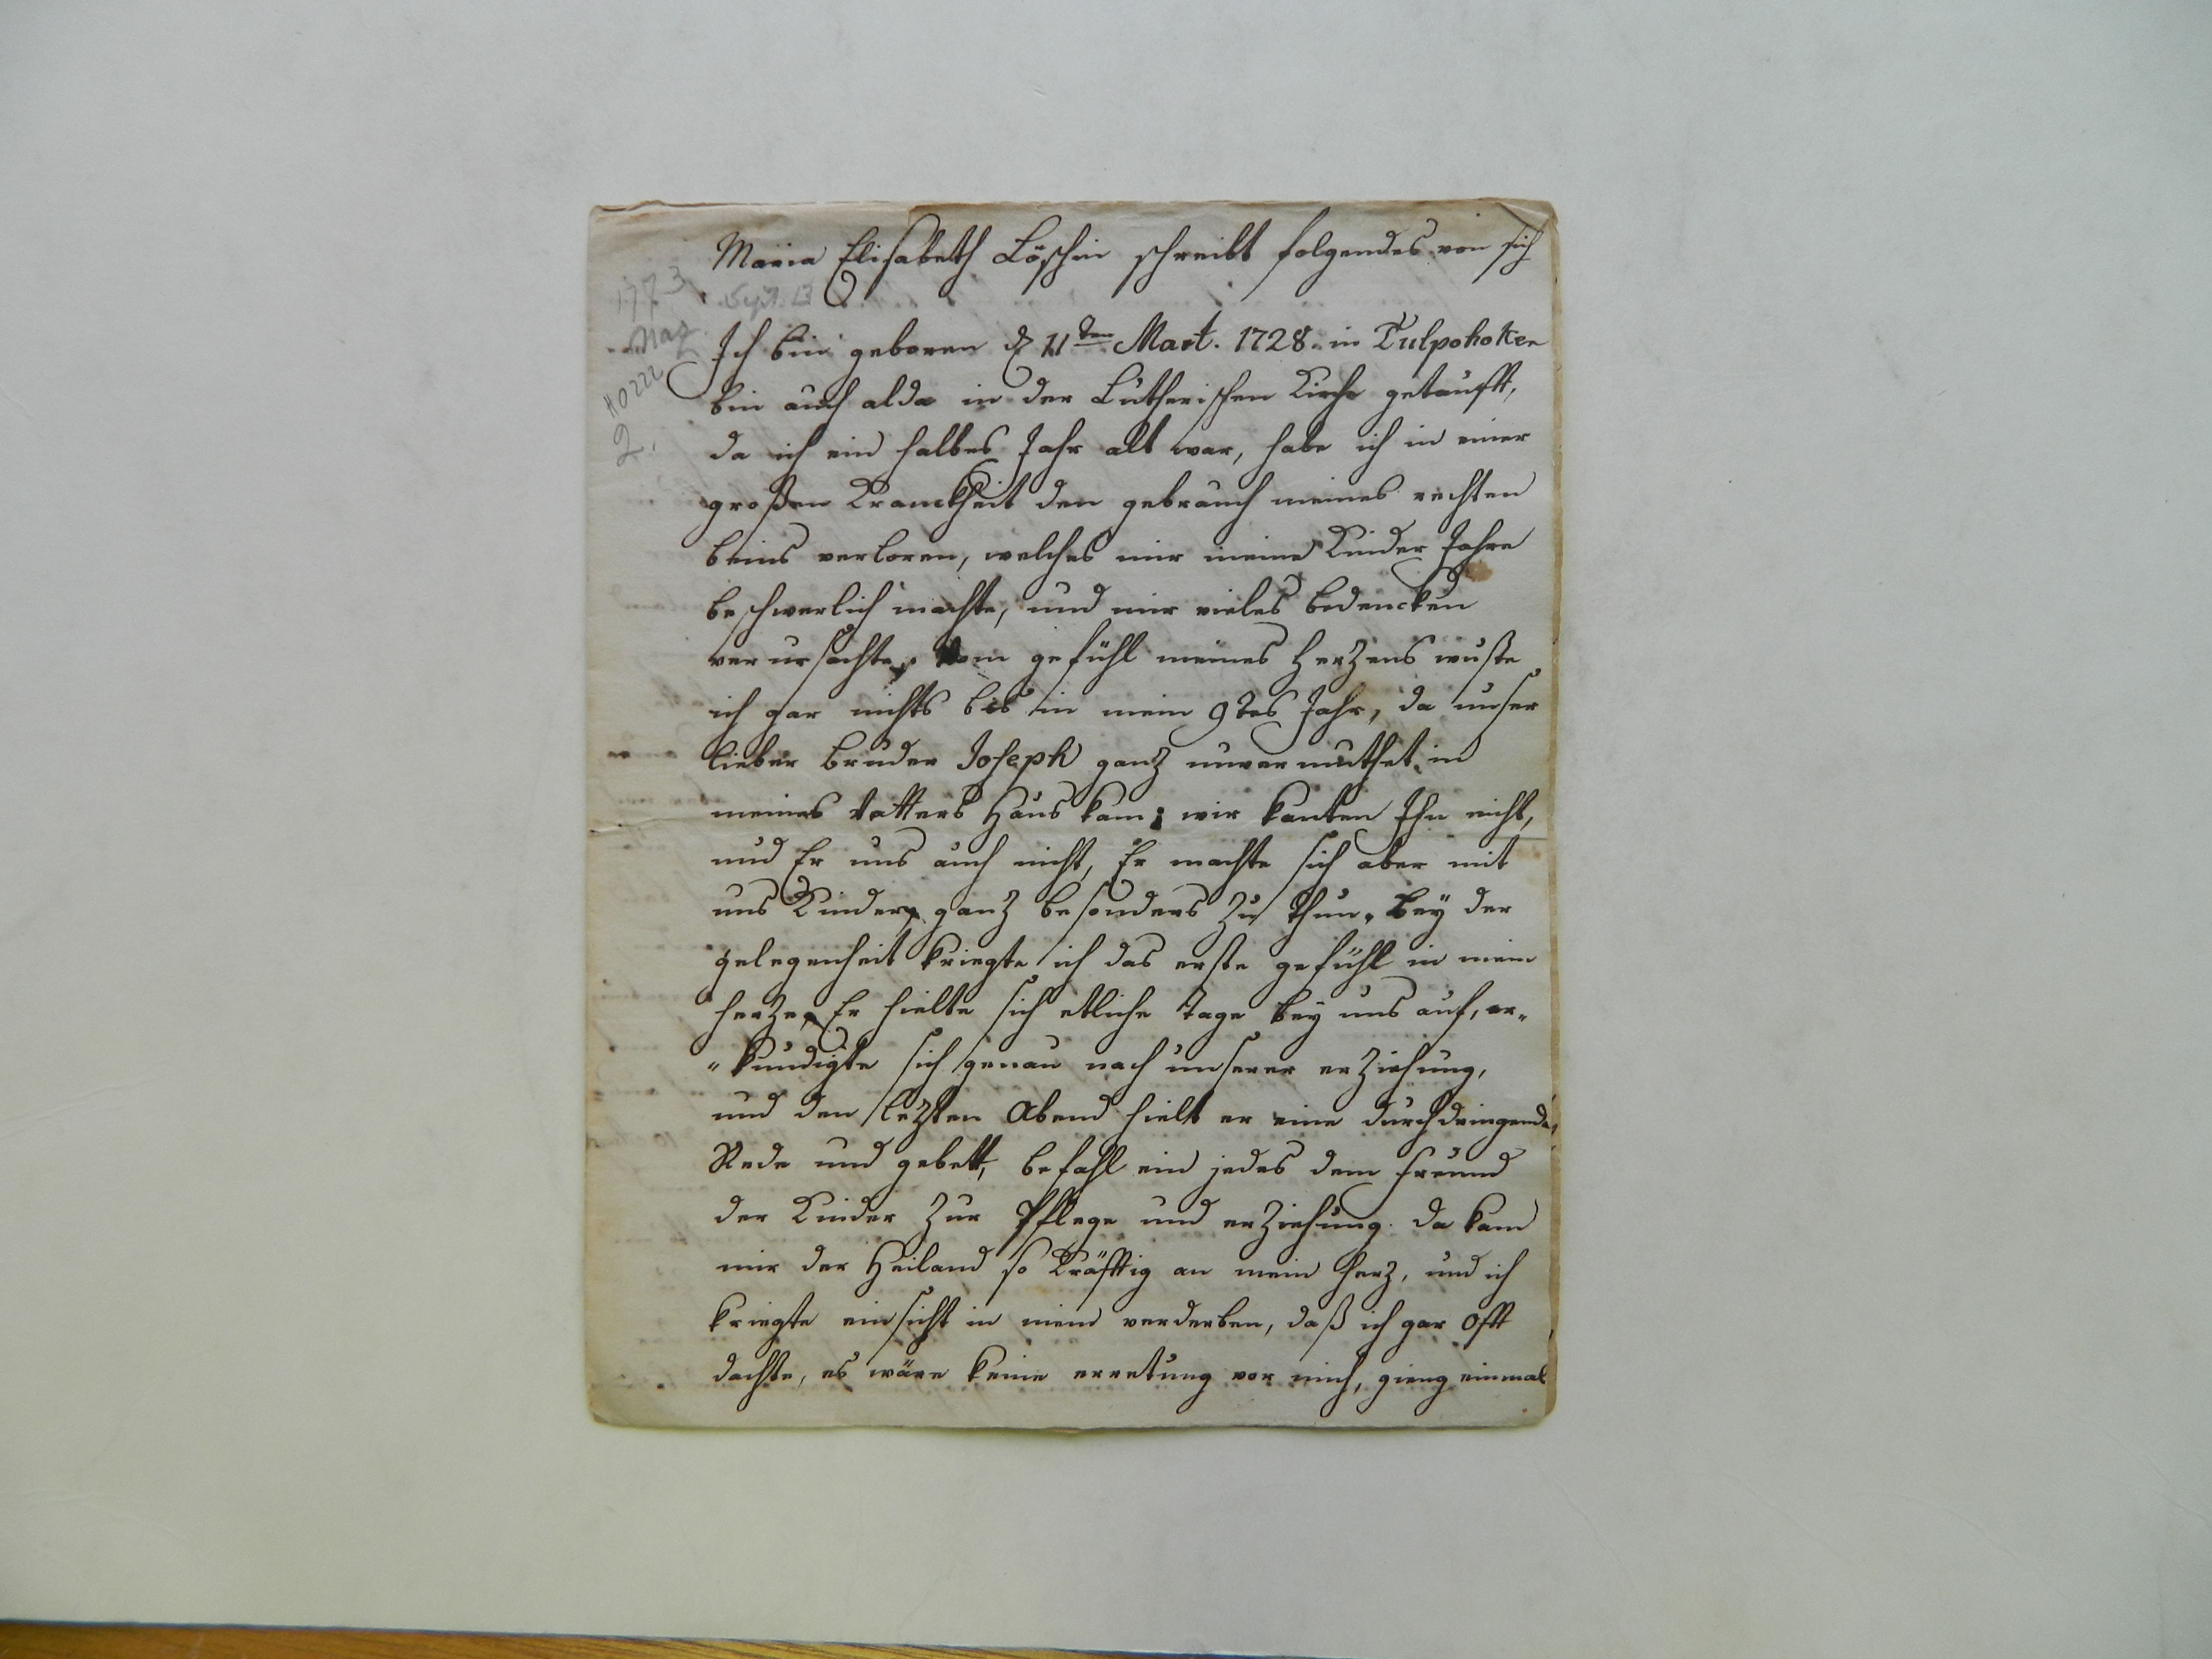 Maria Elisabeth Löschin schreibt folgendes von sich
1773 Sept. 13
Naz
Ich bin geboren d 11ten Mart. 1728. in Tulpohoken
bin auch alda in der Lutherischen Kirche getaufft,
2.
da ich ein halbes Jahr alt war, habe ich in einer
großen Kranckheit den gebrauch meines rechten
beins verloren, welches mir meine Kinder Jahre
beschwerlich machte, und mir vieles bedencken
verursachte, Vom gefühl meines Herzens wuste
ich gar nichts bis in mein 9tes Jahr, da unser
lieber bruder Joseph ganz unvermuthet in
meines Vatters Haus kam; wir kanten Ihn nicht,
und Er uns auch nicht, Er machte sich aber mit
uns Kinder ganz besonders zu thun. Bey der
gelegenheit kriegte ich das erste gefühl in mein
herze, Er hielte sich etliche Tage bey uns auf, er„
„kundigte sich genau nach unserer erziehung,
und den lezten Abend hielt er eine durchdringende
Rede und gebett, befahl ein jedes dem freund
der Kinder zur Pflege und erziehung. da kam
mir der Heiland so kräfftig an mein herz, und ich
kriegte einsicht in mein verderben, daß ich gar offt
dachte, es wäre keine erretung vor mich, gieng einmal